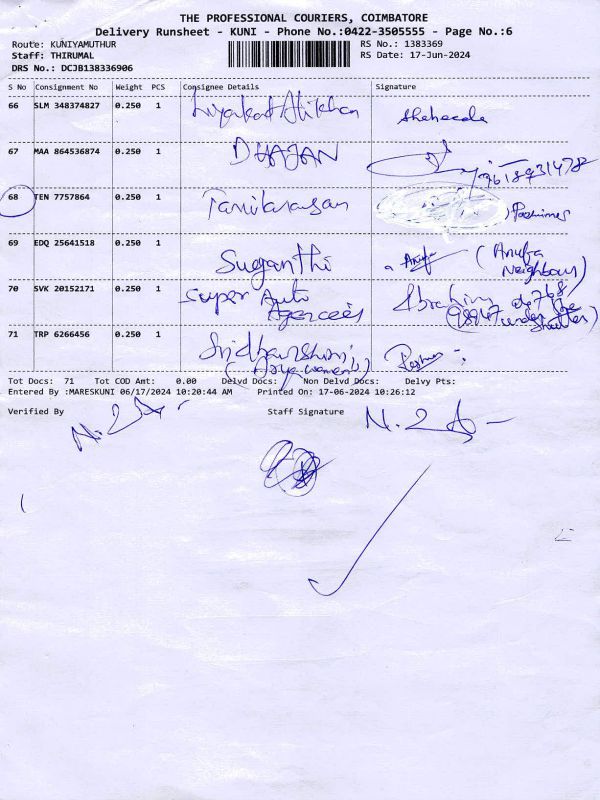 THE PROFESSIONAL COURIERS, COIMBATORE
Delivery Runsheet - KUNI - Phone No.:0422-3505555 - Page No.:6
Route: KUNIYAMUTHUR RS No.: 1383369
Staff: THIRUMAL RS Date: 17-Jun-2024
DRS No.: DCJB138336906
S No Consignment No Weight PCS Consignee Details Signature
66 SLM 348374827 0.250 1 Liyakat Alikhan
67 MAA 864536874 0.250 1 DHAJAN
9618931478
68 TEN 7757864 0.250 1
69 EDQ 25641518 0.250 1 Suganthi Anufa (Anufa
Neighbour)
70 SVK 20152171 0.250 1 Super Auto Ibrahim
Agencees under the
71 TRP 6266456 0.250 1
Tot Docs: 71 Tot COD Amt: 0.00 Delvd Docs: Non Delvd Docs: Delvy Pts:
Entered By :MARESKUNI 06/17/2024 10:20:44 AM Printed On: 17-06-2024 10:26:12
Verified By Staff Signature